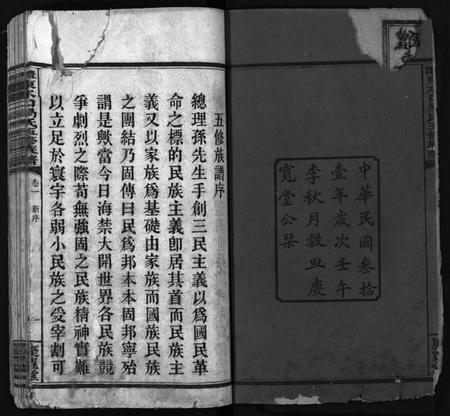 中華民國叁拾
壹年歲次壬午
季秋月榖旦慶
寬堂公栞
五修族譜序
總理孫先生手創三民主義以爲國民革
命之標的民族主義卽居其首而民族主
義又以家族爲基礎由家族而國族民族
之團結乃固傳曰民爲邦本本固邦寧殆
謂是歟當今日海禁大開世界各民族競
爭劇烈之際苟無強固之民族精神實難
以立足於寰宇各弱小民族之受宰割可
卷一
新序